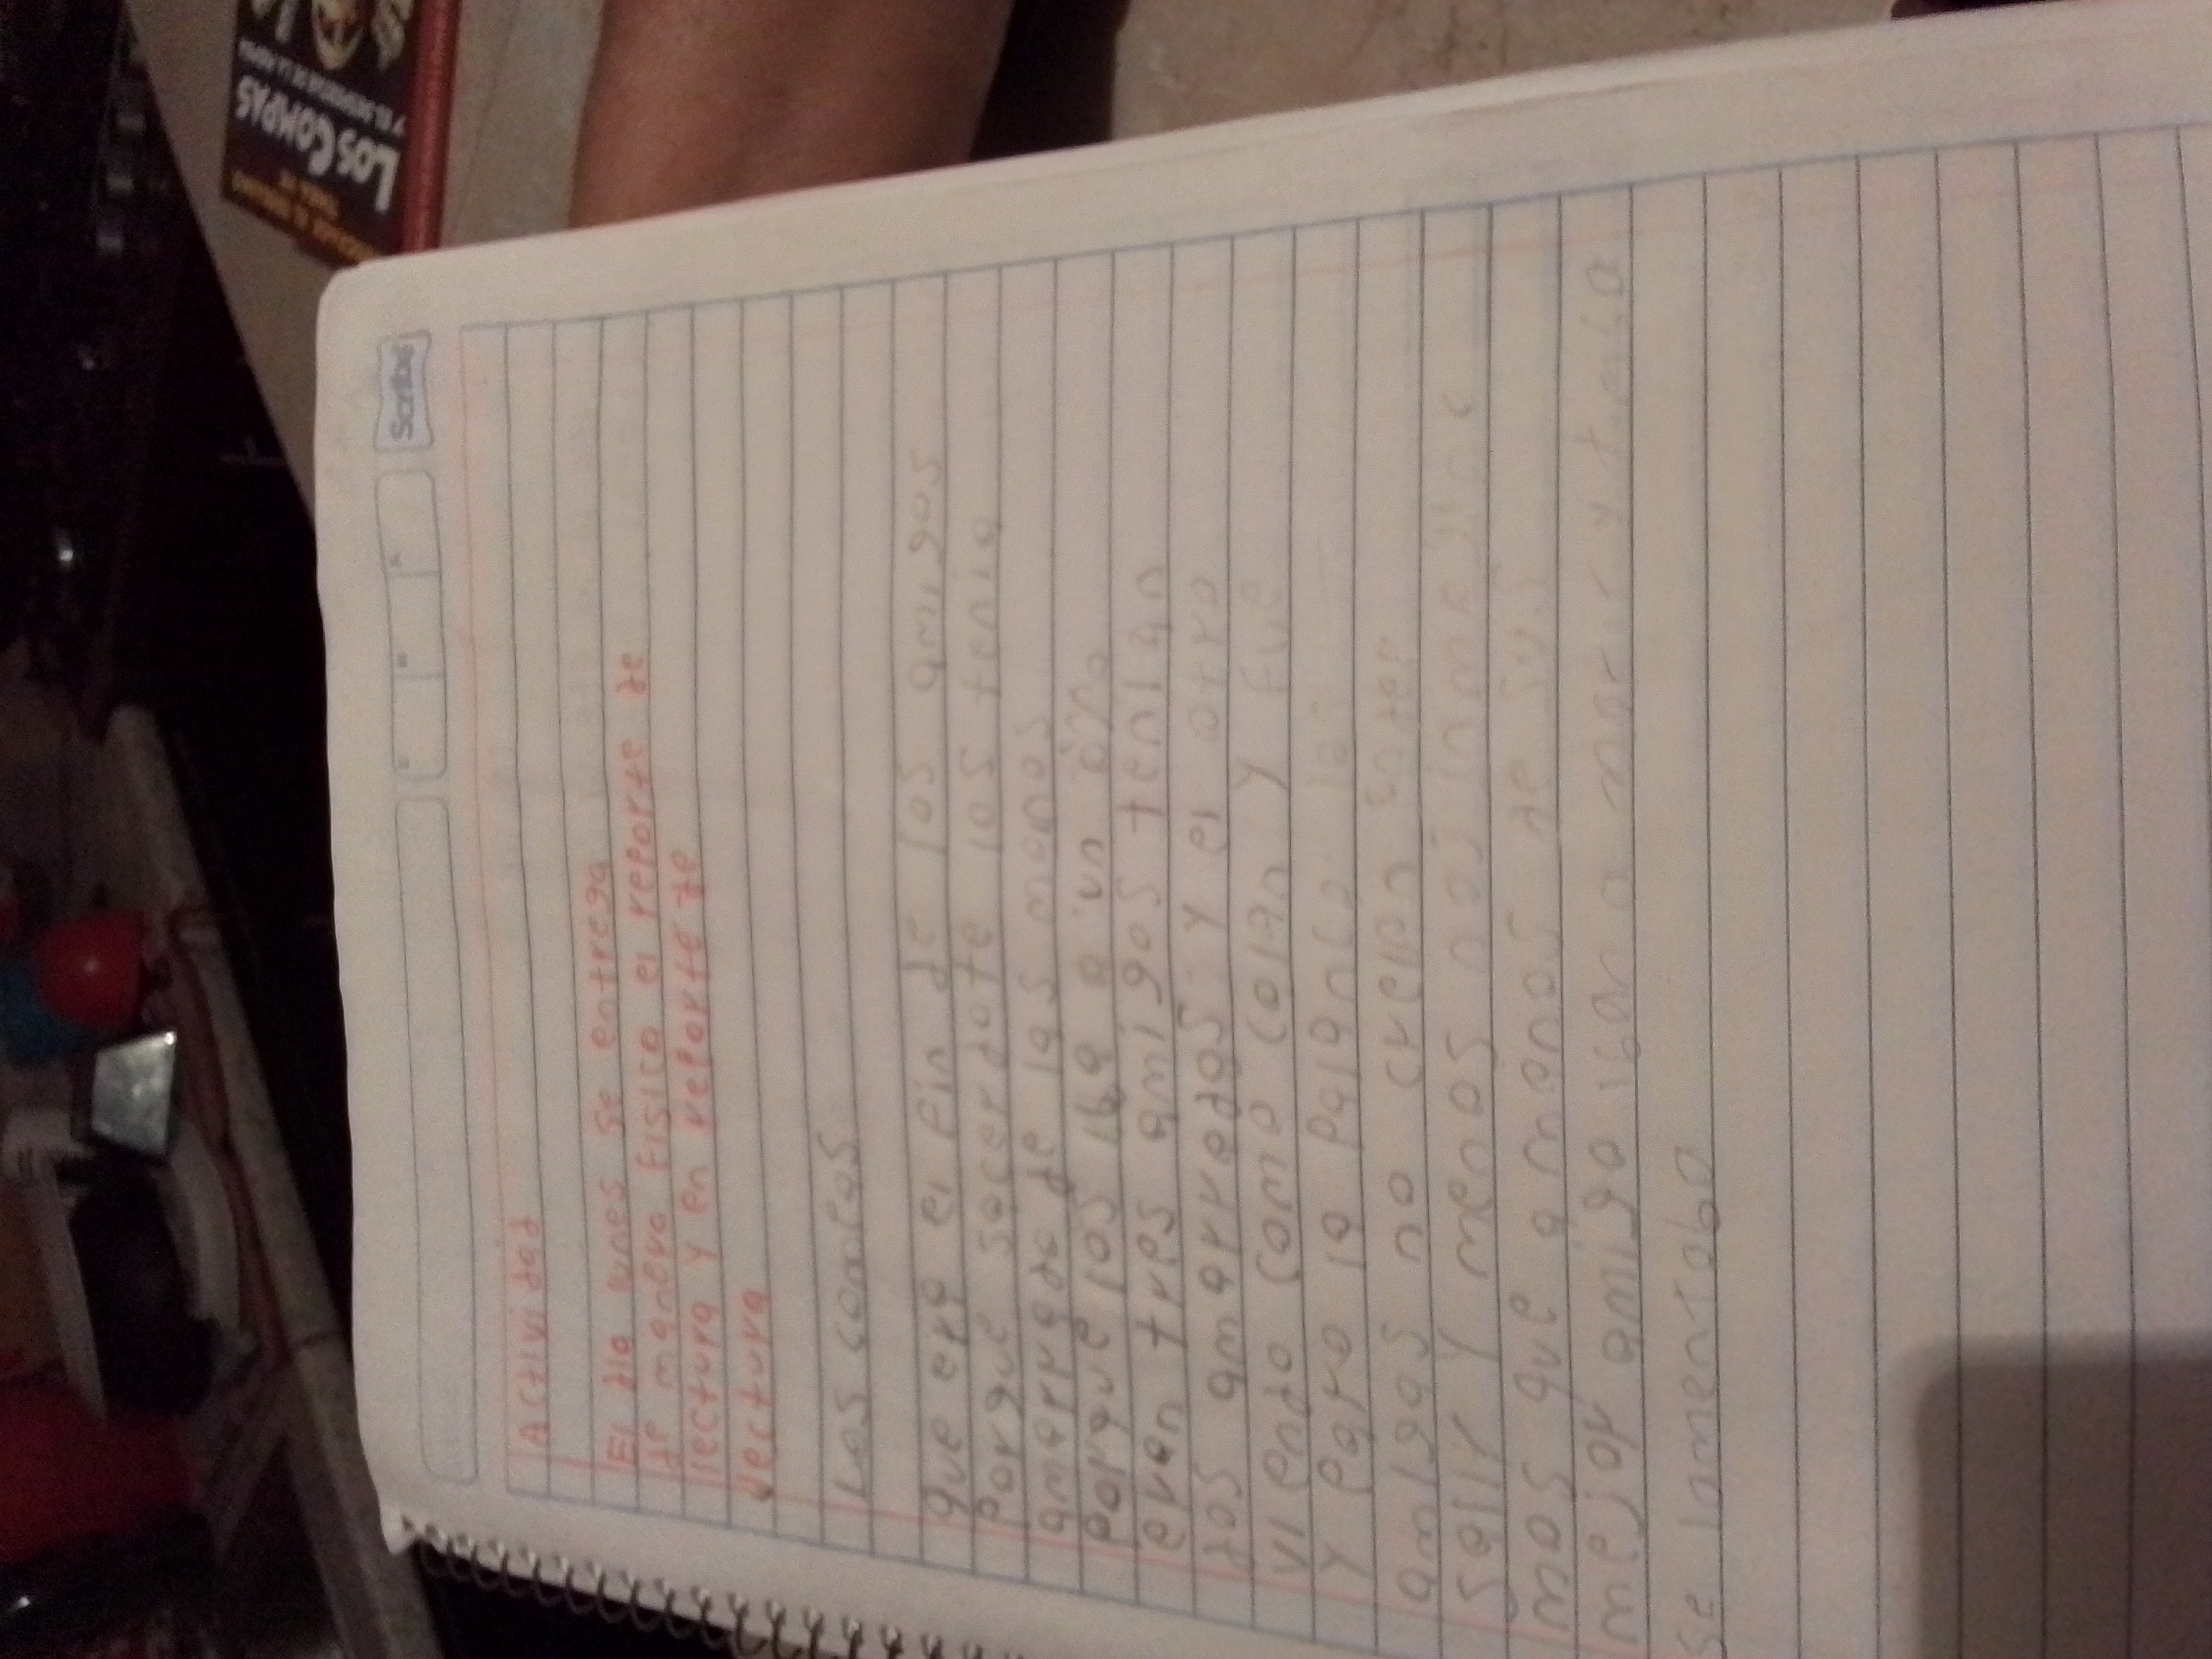 Scribe
Actividad
El dia lunes se entrega
de manera fisica el reporte de
lectura y en reporte de
lectura
Los compas
que era el fin de los amigos
porque sacerdote los tenia
amarrado de las manos
porque los iba a un
eran tres amigos tenian
dos amarrados y el otro
viendo como caian y fue
y paro la palanca. las
amigas no creian
salir y menos
mos que a menos de su
mejor amigo iban a morir y timba
se lamentaba
LOS COMPAS